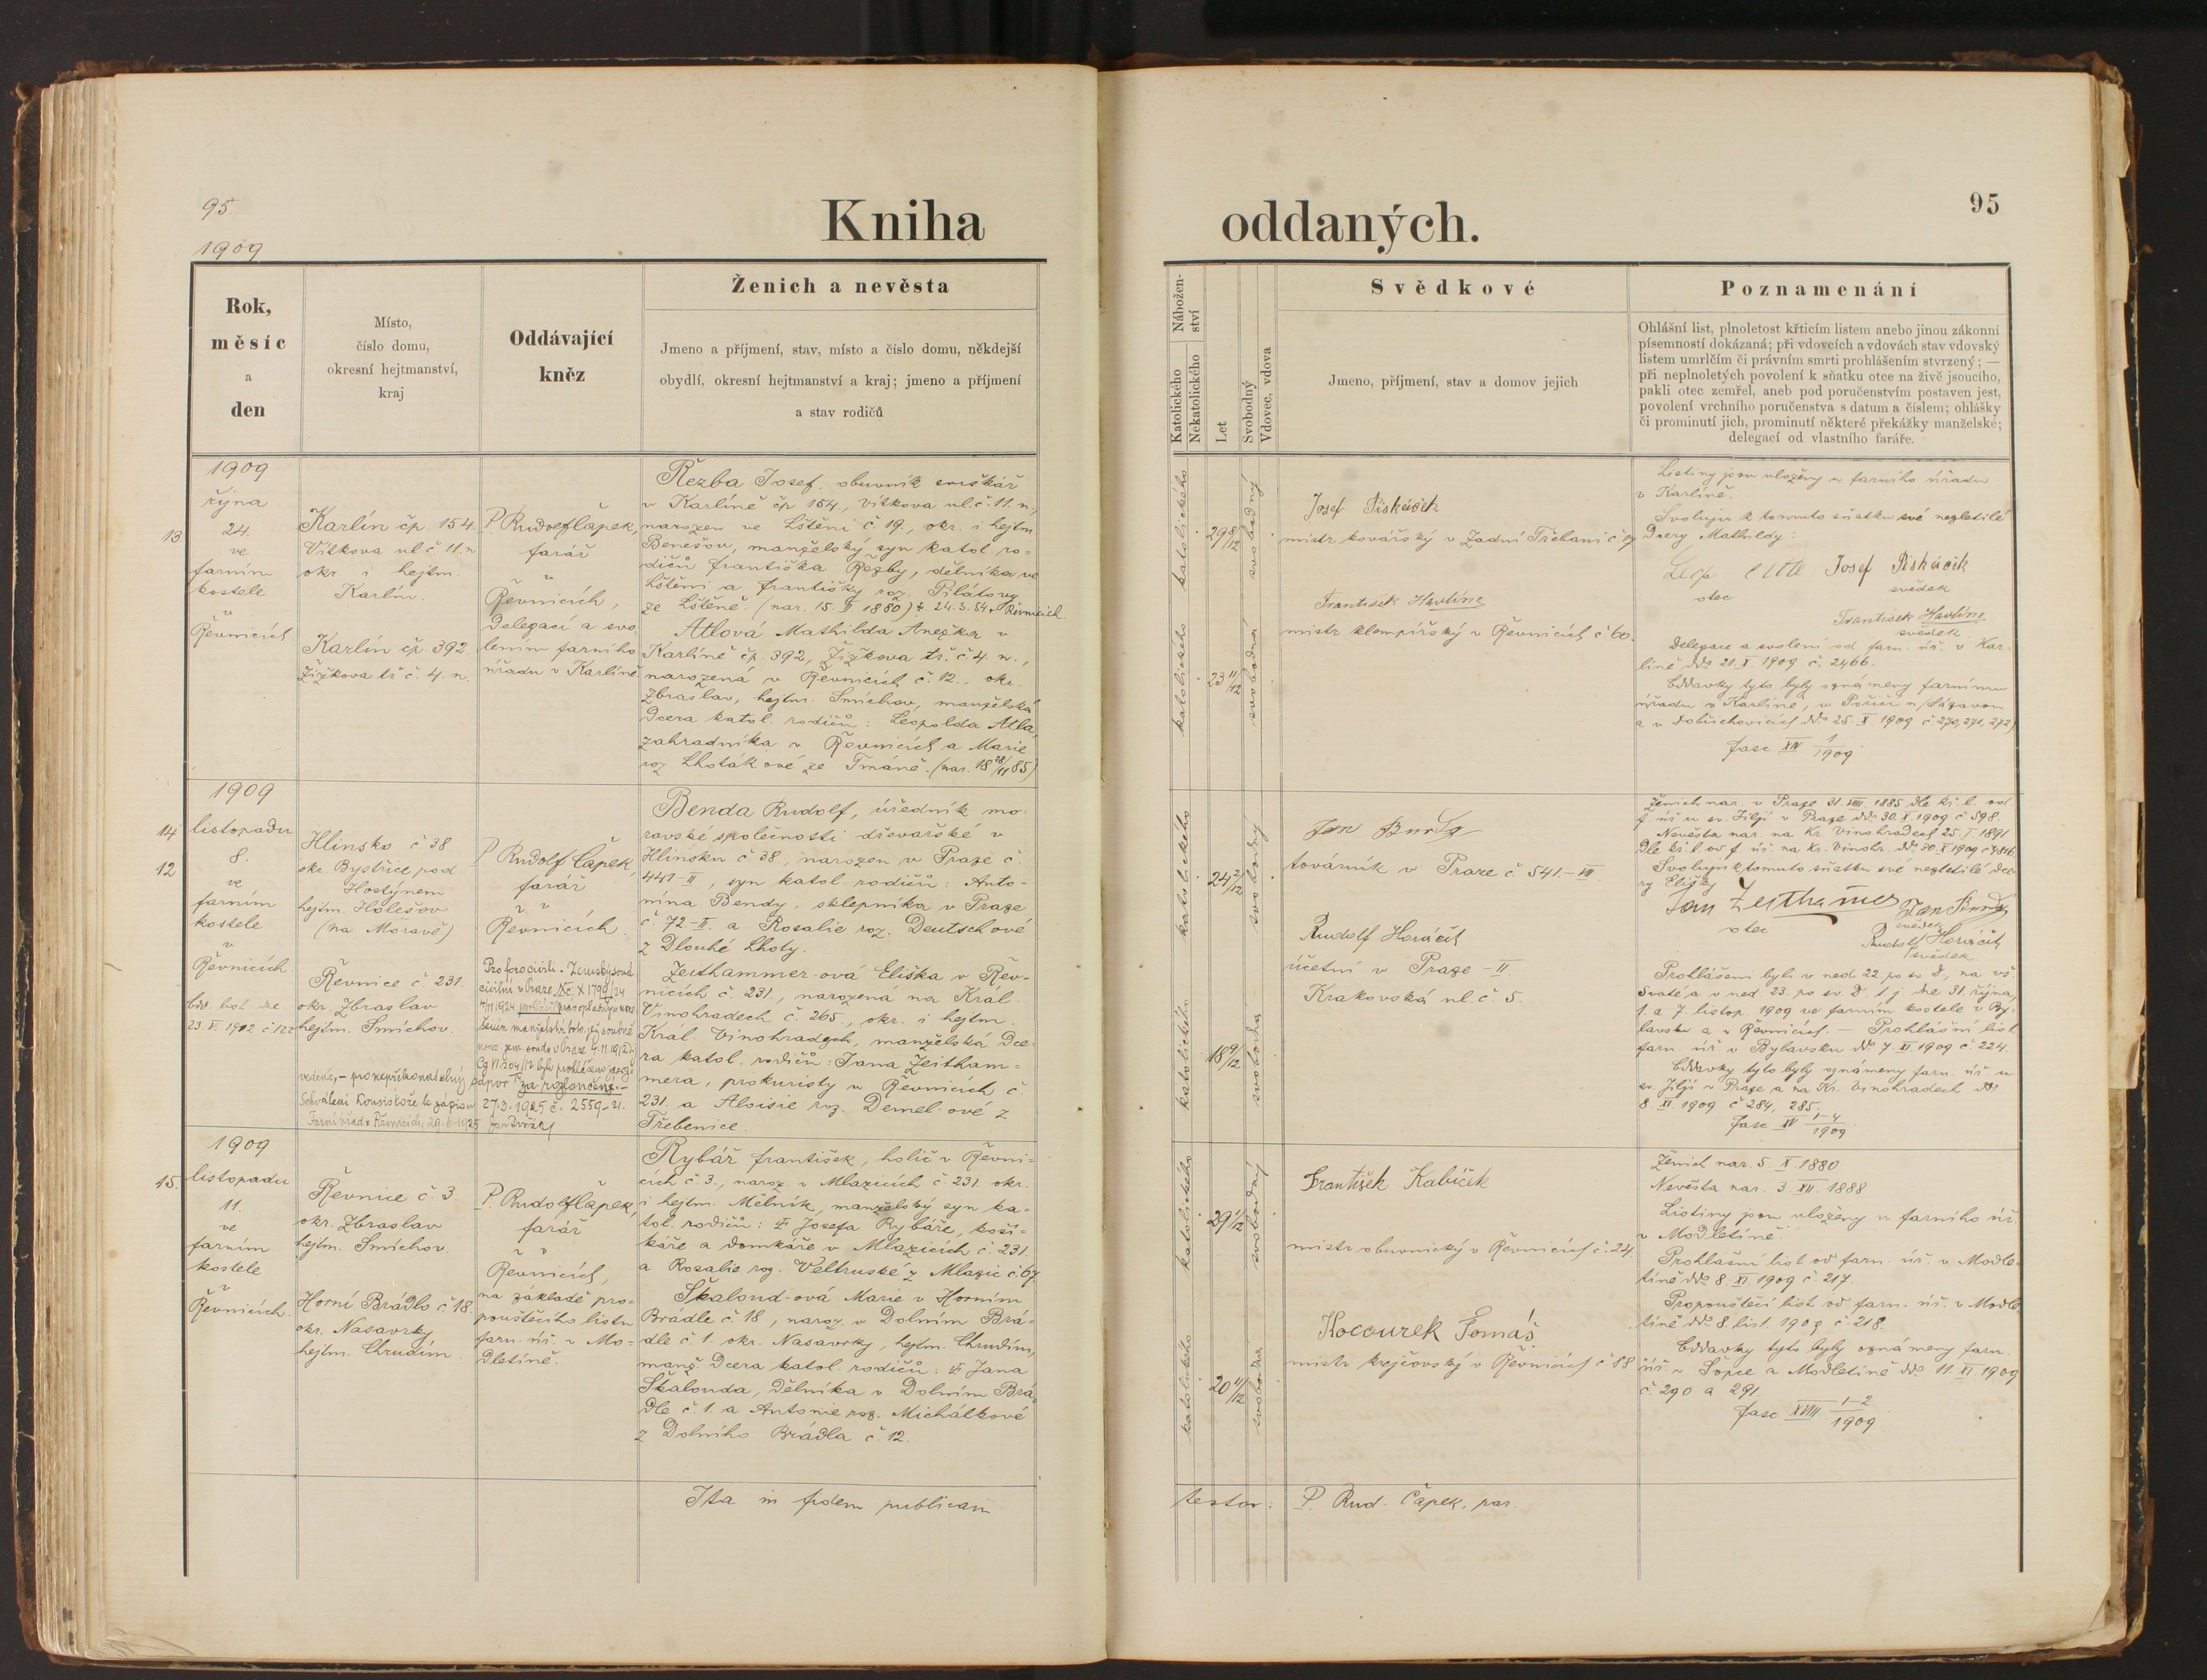 95.
1909
Kniha
Rok,
měsíc
a
den
Místo,
číslo domu,
okresní hejtmanství,
kraj
Oddávající
kněz
Ženich a nevěsta
Jmeno a příjmení, stav, místo a číslo domu, někdejší
obydlí, okresní hejtmanství a kraj; jmeno a příjmení
a stav rodičů
13.
1909
října
24.
ve
farním
kostele
v
Řevnicích.
Karlín čp. 154.
Vítkova ul. č 11. n.
okr. i hejtm.
Karlín.
Karlín čp. 392.
Žižkova tř. č. 4. n.
P. Rudolf Čapek,
farář
v
Řevnicích,
Delegací a svo-
lením farního
úřadu v Karlíně
Řezba Josef, obuvník
v Karlíně čp 154, Vítkova ul. č. 11. n.,
narozen ve Lštění č. 19., okr. i hejtm
Benešov, manželský syn katol ro-
dičů Františka Řezby, dělníka ve
Lštění a Františky roz. Pilátovy
ze Lštěně. (nar. 15. 1880) 24.3.54 v Řevnicích.
Atlová Mathilda Anežka v
Karlíně čp. 392, Žižkova tř. č. 4. n.,
narozená v Řevnicích č. 12., okr.
Zbraslav, hejtm. Smíchov, manželská
dcera katol. rodičů: Leopolda Atla,
zahradníka v Řevnicích a Marie
roz Lhotákové ze Tmáně. (nar. 18 28/11 85)
14
12
1909
listopadu
8.
ve
farním
kostele
v
Řevnicích
Odd. list dne
23. V. 1912 č. 122
Hlinsko č 38.
okr. Bystřice pod
Hostýnem
hejtm. Holešov
(na Moravě)
Řevnice č. 231.
okr. Zbraslav
hejtm. Smíchov.
P. Rudolf Čapek,
farář
v
Řevnicích.
Pro foro civili - Zemský soud
civilní v Praze Nc. X 1799/24
27.3.1925 č. 2559
Farní úřad v Řevnicích, 29. 1925 Jan Dvořák
Benda Rudolf, úředník mo-
ravské společnosti dřevařské v
Hlinsku č 38., narozen v Praze č.
441-II, syn katol. rodičů: Anto-
nína Bendy, sklepníka v Praze
č 72-II. a Rosalie roz. Deutschové
z Dlouhé Lhoty.
Zeithammer-ová Eliška v Řev-
nicích č. 231., narozená na Král.
Vinohradech č. 265., okr. i hejtm.
Král. Vinohradech, manželská dce-
ra katol. rodičů: Jana Zeitham-
mera, prokuristy v Řevnicích č
231. a Aloisie roz. Demel-ové z
Třebenice.
15.
1909
listopadu
11.
ve
farním
kostele
v
Řevnicích.
Řevnice č 3.
okr. Zbraslav
hejtm. Smíchov.
Horní Brádlo č 18.
okr. Nasavrky
hejtm. Chrudim.
P. Rudolf Čapek,
farář
v
Řevnicích,
na základě pro-
pouštěcího listu
farn. úř. v Mo-
dletíně.
Rybář František, holič v Řevni-
cích č 3., naroz. v Mlazicích č. 231. okr.
i hejtm. Mělník, manželský syn ka-
tol. rodičů: † Josefa Rybáře, koší-
káře a domkáře v Mlazicích č. 231.
a Rozalie roz. Veltruské z Mlazic č. 67
Škaloud-ová Marie v Horním
Brádle č 18, naroz. v Dolním Brá-
dle č 1. okr. Nasavrky, hejtm. Chrudim,
manž. dcera katol. rodičů: † Jana
Škalouda, dělníka v Dolním Brá-
dle č. 1. a Antonie roz. Michálkové
z Dolního Brádla č. 12.
Ita in fidem publicam
oddaných.
95
Nábožen-
ství
Katolického
Nekatolického
Let
Svobodný
Vdovec, vdova
Svědkové
Jmeno, příjmení, stav a domov jejich
Poznamenání
Ohlášní list, plnoletost křticím listem anebo jinou zákonní
písemností dokázaná; při vdovcích a vdovách stav vdovský
listem umrlčím či právním smrti prohlášením stvrzený; —
při neplnoletých povolení k sňatku otce na živě jsoucího,
pakli otec zemřel, aneb pod poručenstvím postaven jest,
povolení vrchního poručenstva s datum a číslem; ohlášky
či prominutí jich, prominutí některé překážky manželské;
delegací od vlastního faráře.
katolického
29 8/12
svobodný
katolického
23 11/12
svobodná
Josef Piskáček
mistr kovářský v Zadní Třebani č. 7
František Havlíne
mistr klempířský v Řevnicích č 60.
Listiny jsou uloženy u farního úřadu
v Karlíně.
Svoluju k tomuto sňatku své nezletilé
Dcery Mathildy:
Leop
otec
Josef Piskáček
svědek
František Havlíne
svědek
Delegace a svolení od farn. úř. v Kar-
líně ddo 21. X. 1909 č. 2466.
Oddavky tyto byly oznámeny farnímu
úřadu v Karlíně, v Poříčí n/Sázavou
a v Dobřichovicích ddo 25. X. 1909 č 270, 271, 272.
Fasc XIV 1/1909
katolického
24 2/12
svobodný
katolického
18 9/12
svobodná
továrník v Praze č 541.-VII.
Rudolf Horáček
účetní v Praze-II
Krakovská ul. č 5.
Ženich nar. v Praze 31. VIII. 1885 dle kř. l. od
f. úř. u sv. Jiljí v Praze ddo 30. X 1909 č 598.
Nevěsta nar. na Kr. Vinohradech 25. I 1891
Dle kř. l. od f. úř. na Kr. Vinohr. ddo 30. X 1909
Svoluji k tomuto sňatku své nezletilé dce-
ry Elišky
Jan Zeithammer
otec
svědek
Rudolf Horáček
svědek
Prohlášeni byli v ned. 22. po sv. D., na vš.
Svaté a v ned. 23. po sv. D. t. j. dne 31. října,
1. a 7. listop. 1909 ve farním kostele v By-
lavsku a v Řevnicích. — Prohlášní list
farn. úř. v Bylavsku ddo 7 XI. 1909 č 224.
Oddavky tyto byly oznámeny farn. úř. u
sv. Jiljí v Praze a na Kr. Vinohradech ddo
8. XI 1909 č 284, 285.
Fasc XV 1-4/1909
katolického
29 1/12
svobodný
katolického
20 11/12
svobodná
František Kabíček
mistr obuvnický v Řevnicích č. 24
Kocourek Tomáš
mistr krejčovský v Řevnicích č 88
Ženich nar. 5. X 1880
Nevěsta nar. 3. XII. 1888
Listiny jsou uloženy u farního úř.
v Modletíně.
Prohlášní list od farn. úř. v Modle-
tíně ddo 8. XI. 1909 č. 217.
Propouštěcí list od farn. úř. v Modle-
tíně ddo 8. list. 1909 č 218.
Oddavky tyto byly oznámeny farn.
úř. v Šopce a Modletíně ddo 11. XI. 1909
č. 290 a 291.
Fasc XVIII 1-2/1909
testor: P. Rud. Čapek, par.